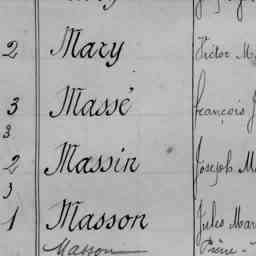 2 Mary Victor M
3 Massé François J
3
2 Massin Joseph Ma
3
1 Masson Jules Mar
Masson Pierre